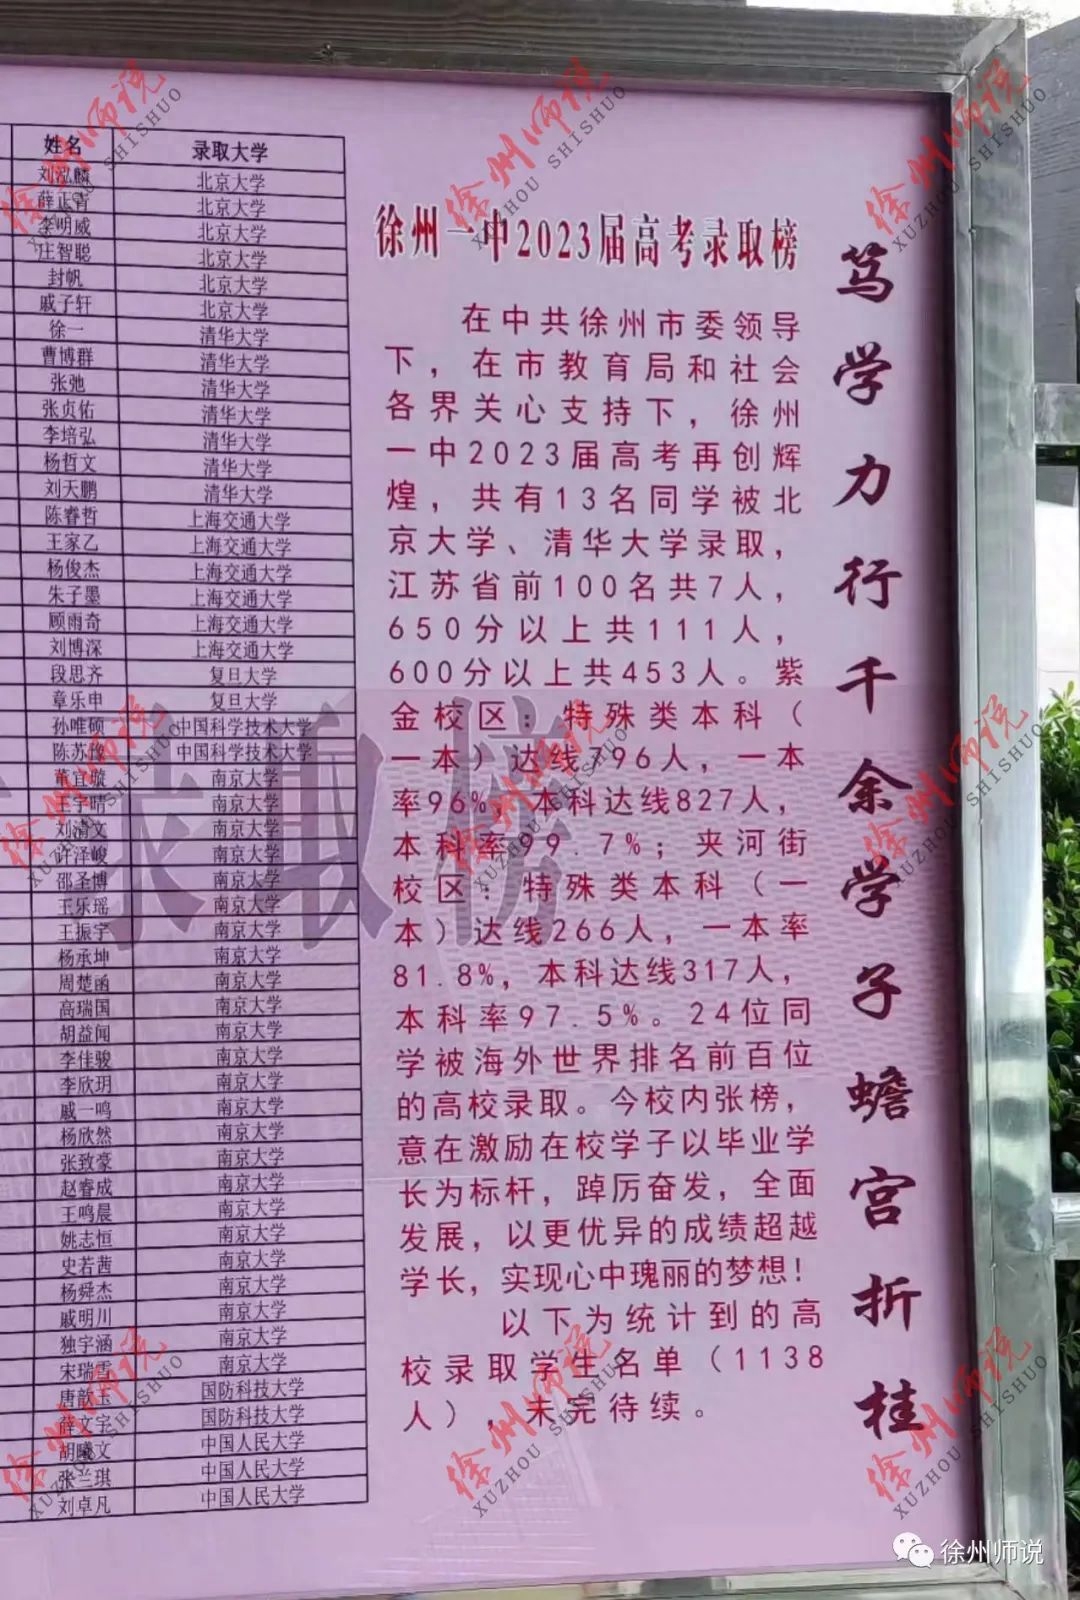 姓名 录取大学
刘泓麟 北京大学
薛正青 北京大学
李明威 北京大学
庄智聪 北京大学
封帆 北京大学
戚子轩 北京大学
徐一 清华大学
曹博群 清华大学
张弛 清华大学
张贞佑 清华大学
李培弘 清华大学
杨哲文 清华大学
刘天鹏 清华大学
陈睿哲 上海交通大学
王家乙 上海交通大学
杨俊杰 上海交通大学
朱子墨 上海交通大学
顾雨奇 上海交通大学
刘博深 上海交通大学
段思齐 复旦大学
章乐申 复旦大学
孙唯硕 中国科学技术大学
陈苏豫 中国科学技术大学
董宜璇 南京大学
王宇晴 南京大学
刘清文 南京大学
许泽峻 南京大学
邵圣博 南京大学
王乐瑶 南京大学
王振宇 南京大学
杨承坤 南京大学
周楚函 南京大学
高瑞国 南京大学
胡益闻 南京大学
李佳骏 南京大学
李欣玥 南京大学
戚一鸣 南京大学
杨欣然 南京大学
张致豪 南京大学
赵睿成 南京大学
王鸣晨 南京大学
姚志恒 南京大学
史若茜 南京大学
杨舜杰 南京大学
戚明川 南京大学
独宇涵 南京大学
宋瑞雪 南京大学
唐韵玉 国防科技大学
薛文宇 国防科技大学
胡曦文 中国人民大学
张兰琪 中国人民大学
刘卓凡 中国人民大学
录取榜
徐州一中2023届高考录取榜
在中共徐州市委领导
下，在市教育局和社会
各界关心支持下，徐州
一中2023届高考再创辉
煌，共有13名同学被北
京大学、清华大学录取，
江苏省前100名共7人，
650分以上共111人，
600分以上共453人。紫
金校区：特殊类本科（
一本）达线796人，一本
率96%，本科达线827人，
本科率99.7%；夹河街
校区：特殊类本科（一
本）达线266人，一本率
81.8%，本科达线317人，
本科率97.5%。24位同
学被海外世界排名前百位
的高校录取。今校内张榜，
意在激励在校学子以毕业学
长为标杆，踔厉奋发，全面
发展，以更优异的成绩超越
学长，实现心中瑰丽的梦想！
以下为统计到的高
校录取学生名单（1138
人），未完待续。
笃学力行千余学子蟾宫折桂
徐州师说
XUZHOU SHISHUO
徐州师说
XUZHOU SHISHUO
徐州师说
XUZHOU SHISHUO
徐州师说
XUZHOU SHISHUO
徐州师说
XUZHOU SHISHUO
徐州师说
XUZHOU SHISHUO
徐州师说
XUZHOU SHISHUO
徐州师说
XUZHOU SHISHUO
徐州师说
XUZHOU SHISHUO
徐州师说